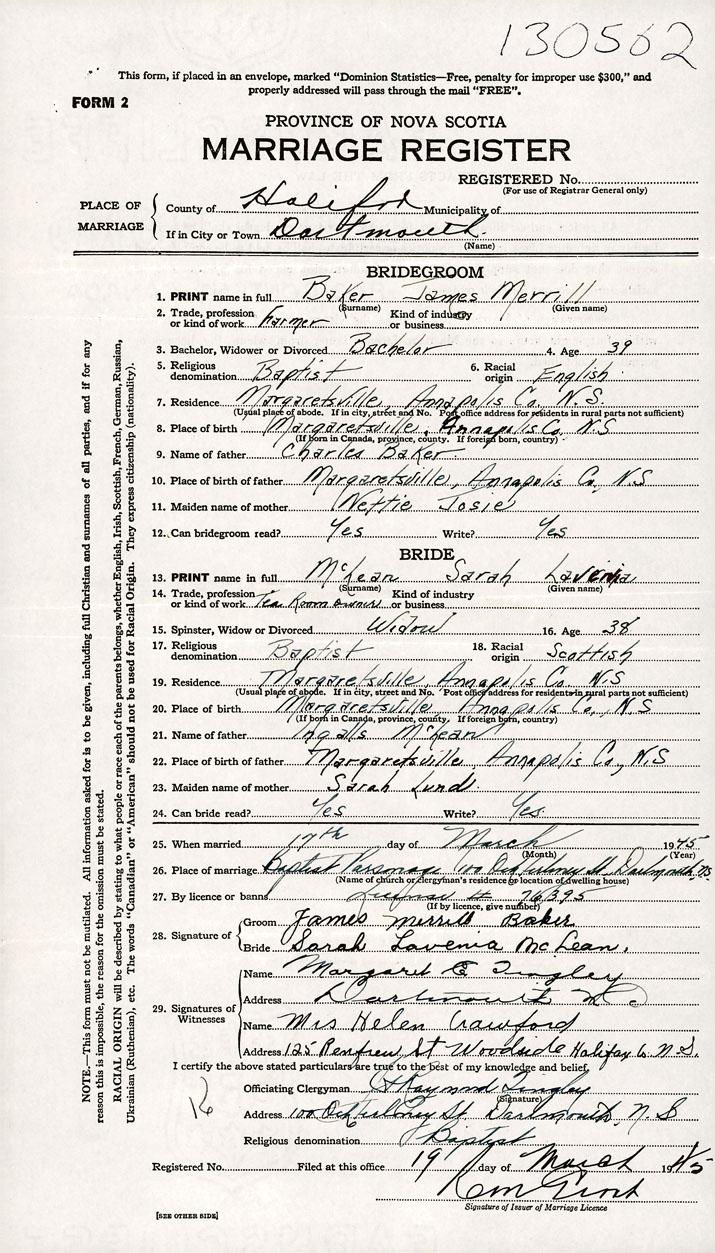 130562
This form, if placed in an envelope, marked "Dominion Statistics—Free, penalty for improper use $300," and
properly addressed will pass through the mail "FREE".
FORM 2
PROVINCE OF NOVA SCOTIA
MARRIAGE REGISTER
REGISTERED No.
(For use of Registrar General only)
PLACE OF MARRIAGE
County of Halifax Municipality of
If in City or Town Dartmouth
(Name)
BRIDEGROOM
1. PRINT name in full Baker James Merrill
(Surname) (Given name)
2. Trade, profession or kind of work Farmer Kind of industry or business
3. Bachelor, Widower or Divorced Bachelor 4. Age 39
5. Religious denomination Baptist 6. Racial origin English
7. Residence Margaretsville, Annapolis Co. N.S.
(Usual place of abode. If in city, street and No. Post office address for residents in rural parts not sufficient)
8. Place of birth Margaretsville, Annapolis Co, N.S
(If born in Canada, province, county. If foreign born, country)
9. Name of father Charles Baker
10. Place of birth of father Margaretsville, Annapolis Co, N.S
11. Maiden name of mother Nettie Josie
12. Can bridegroom read? Yes Write? Yes
BRIDE
13. PRINT name in full McLean Sarah Lavenia
(Surname) (Given name)
14. Trade, profession or kind of work Tea Room owner Kind of industry or business
15. Spinster, Widow or Divorced Widow 16. Age 38
17. Religious denomination Baptist 18. Racial origin Scottish
19. Residence Margaretsville, Annapolis Co. N.S
(Usual place of abode. If in city, street and No. Post office address for residents in rural parts not sufficient)
20. Place of birth Margaretsville, Annapolis Co, N.S
(If born in Canada, province, county. If foreign born, country)
21. Name of father Ingalls McLean
22. Place of birth of father Margaretsville, Annapolis Co, N.S
23. Maiden name of mother Sarah Lund
24. Can bride read? Yes Write? Yes.
25. When married 17th day of March 1945
(Month) (Year)
26. Place of marriage Baptist Parsonage 100 St, Dartmouth, N.S
(Name of church or clergyman's residence or location of dwelling house)
27. By licence or banns License # 76395
(If by licence, give number)
28. Signature of
Groom James Merrill Baker
Bride Sarah Lavenia McLean.
29. Signatures of Witnesses
Name Margaret E Tingley
Address Dartmouth
Name Mrs Helen Crawford
Address 125 Renfrew St Woodside Halifax Co. N.S.
I certify the above stated particulars are true to the best of my knowledge and belief,
Officiating Clergyman Raymond Tingley
(Signature)
Address 100 St Dartmouth, N.S
Religious denomination Baptist
Registered No. Filed at this office 19 day of March 1945
Signature of Issuer of Marriage Licence
[SEE OTHER SIDE]
NOTE.—This form must not be mutilated. All information asked for is to be given, including full Christian and surnames of all parties, and if for any
reason this is impossible, the reason for the omission must be stated.
RACIAL ORIGIN will be described by stating to what people or race each of the parents belongs, whether English, Irish, Scottish, French, German, Russian,
Ukrainian (Ruthenian), etc. The words "Canadian" or "American" should not be used for Racial Origin. They express citizenship (nationality).